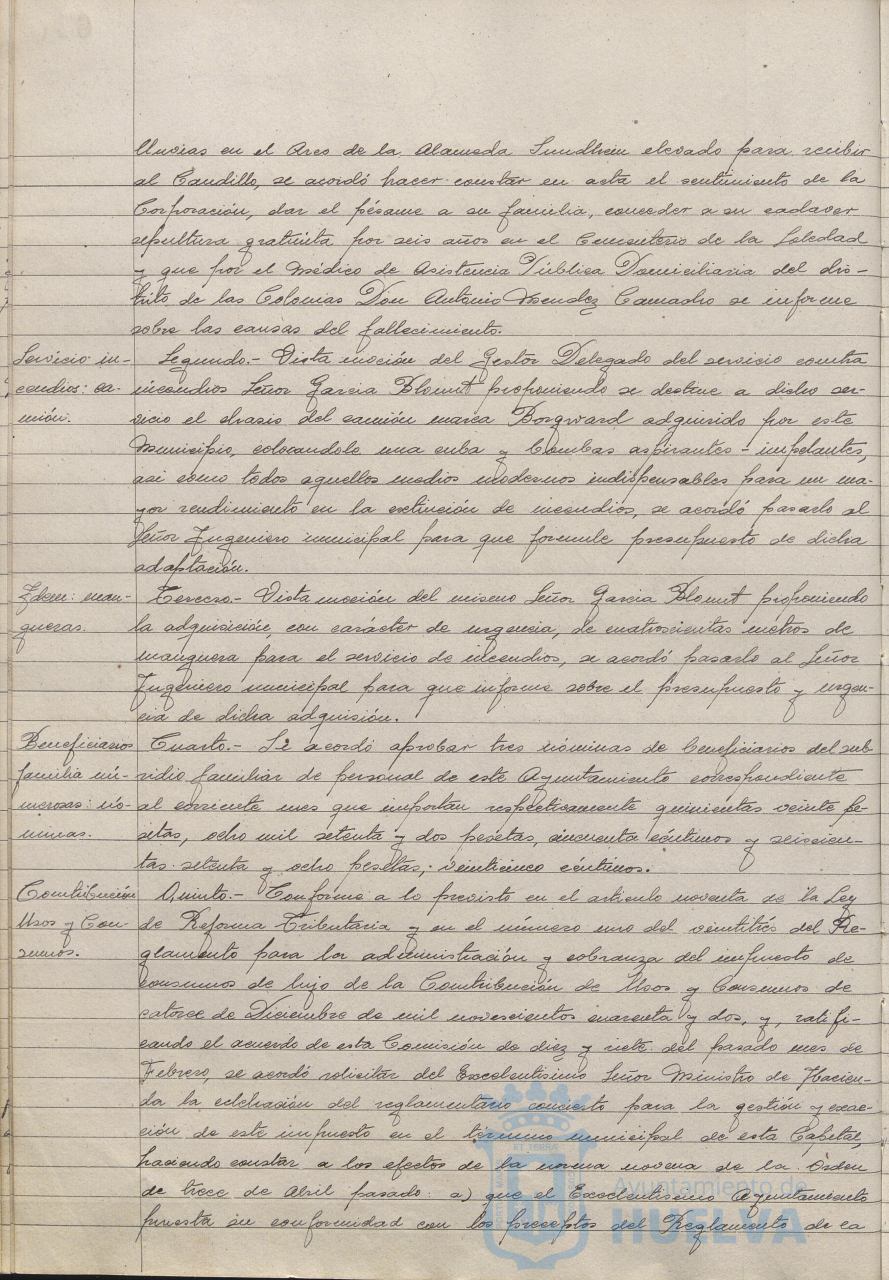 lluvias en el Arco de la Alameda Sundhein elevado para recibir
al Caudillo, se acordó hacer constar en acta el sentimiento de la
Corporación, dar el pésame a su familia, conceder a su cadaver
sepultura gratuita por seis años en el Cementerio de la Soledad
y que por el Médico de Asistencia Pública Domiciliaria del dis-
trito de las Colonias Don Antonio Mendez Camacho se informe
sobre las causas del fallecimiento.
Servicio in-
cendios: ca-
mión.
Segundo.- Vista moción del Gestor Delegado del servicio contra
incendios Señor Garcia Blomet proponiendo se destine a dicho ser-
vicio el chasis del camión marca Borgward adquirido por este
Municipio, colocandolo una cuba y bombas aspirantes-impelantes,
asi como todos aquellos medios modernos indispensables para un ma-
yor rendimiento en la extinción de incendios, se acordó pasarlo al
Señor Ingeniero municipal para que formule presupuesto de dicha
adaptación.
Idem: man-
gueras.
Tercero.- Vista moción del mismo Señor Garcia Blomet proponiendo
la adquisición, con carácter de urgencia, de cuatrocientas metros de
manguera para el servicio de incendios, se acordó pasarlo al Señor
Ingeniero municipal para que informe sobre el presupuesto y urgen-
cia de dicha adquisión.
Beneficiarios
familia nu-
merosas: nó-
minas.
Cuarto.- Se acordó aprobar tres nóminas de beneficiarios del sub-
sidio familiar de personal de este Ayuntamiento correspondiente
al corriente mes que importan respectivamente quinientas veinte pe-
setas, ocho mil setenta y dos pesetas, cincuenta céntimos y seiscien-
tas setenta y ocho pesetas, veinticinco céntimos.
Contribución
Usos y Con-
sumos.
Quinto.- Conforme a lo previsto en el articulo noventa de la Ley
de Reforma Tributaria y en el número uno del veintitrés del Re-
glamento para la administración y cobranza del impuesto de
consumos de lujo de la Contribución de Usos y Consumos de
catorce de Diciembre de mil novescientos cuarenta y dos, y, ratifi-
cando el acuerdo de esta Comisión de diez y siete del pasado mes de
Febrero, se acordó solicitar del Excelentisimo Señor Ministro de Hacien-
da la celebración del reglamentario concierto para la gestión y exac-
ción de este impuesto en el término municipal de esta Capital,
haciendo constar a los efectos de la norma novena de la Orden
de trece de Abril pasado: a) que el Excelentisimo Ayuntamiento
presta su conformidad con los preceptos del Reglamento de la
Ayuntamiento de
HUELVA